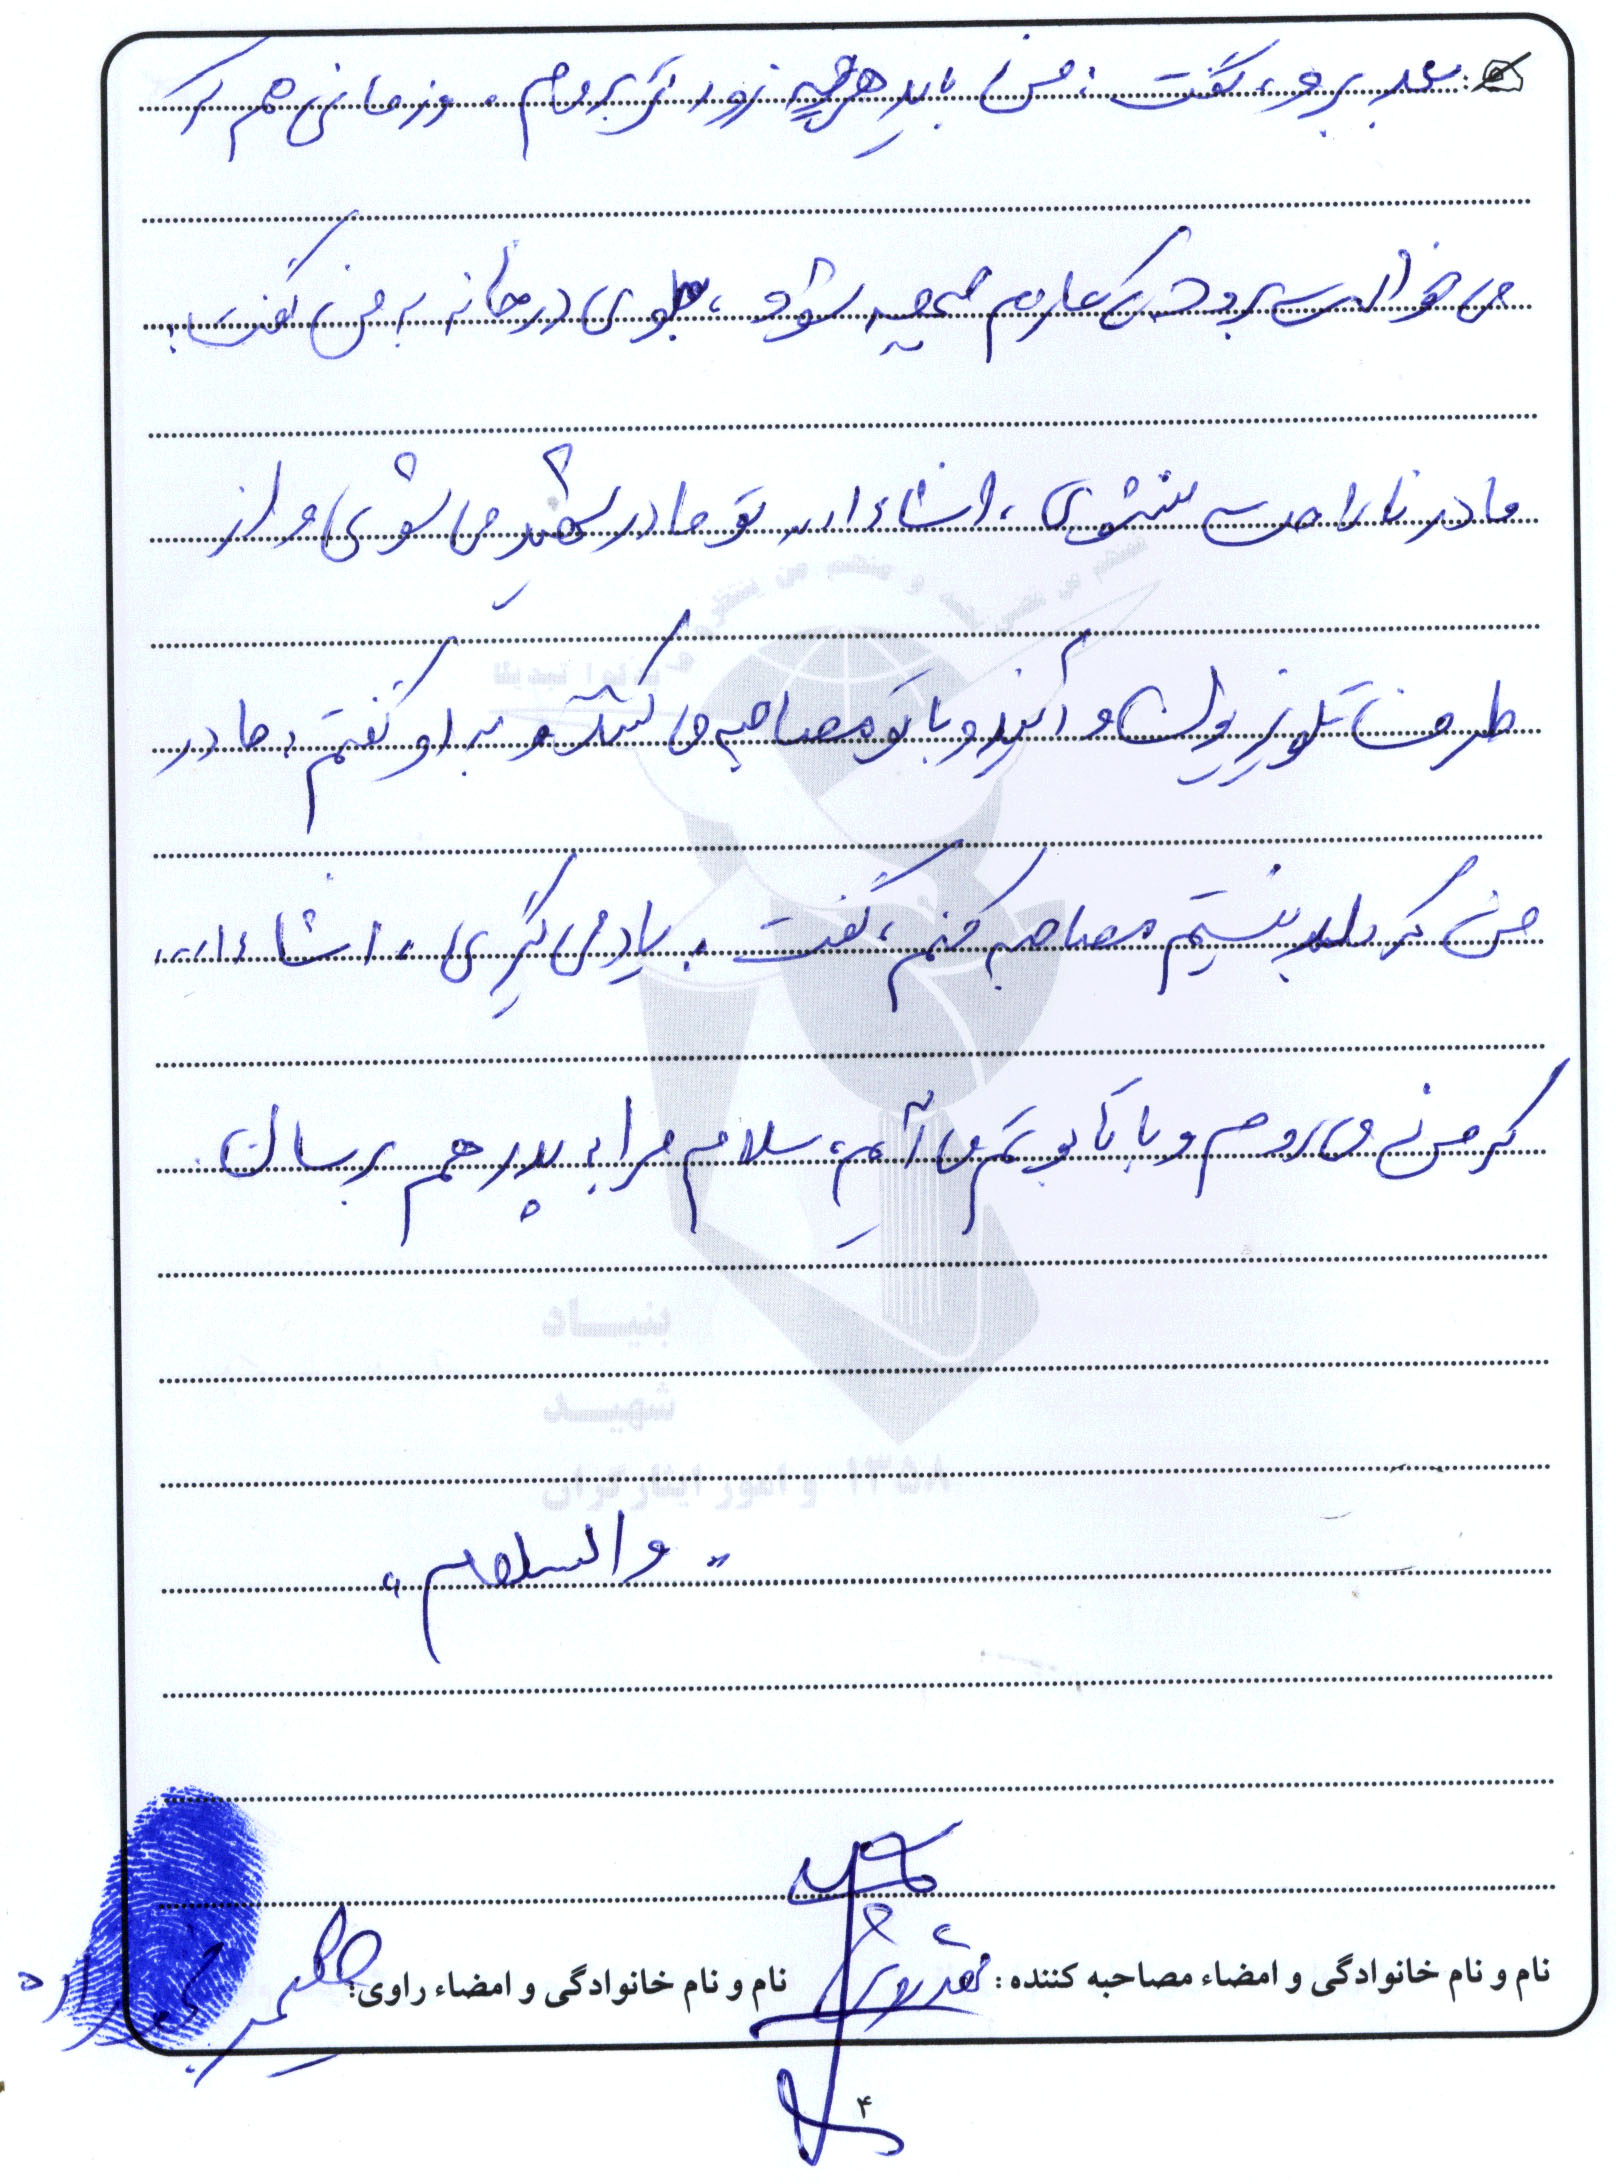 بعد برو، گفت: من باید هرچه زودتر بروم. و زمانی هم که
می خواست برود که عازم جبهه شود، جلوی در خانه به من گفت:
مادر ناراحت نشوی، انشاءا... تو مادر شهید می شوی و از
طرف تلویزیون و آیند و با تو مصاحبه می کنند و به او گفتم: مادر
من که بلد نیستم مصاحبه کنم، گفت: یاد می گیری، انشاءا...
که من می روم و با تابوتم می آیم، سلام مرا به پدر هم برسان.
"والسلام"
بنیاد
شهید
و امور ایثارگران ۱۳۵۸
نام و نام خانوادگی و امضاء مصاحبه کننده: نام و نام خانوادگی و امضاء راوی:
۴